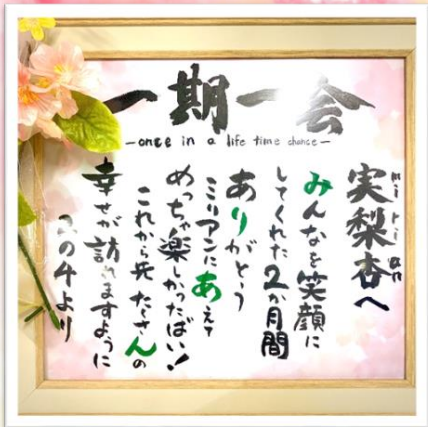 一期一会
-once in a life time chance-
実梨杏へ
mi ri an
みんなを笑顔に
してくれた2か月間
ありがとう
ミリアンにあえて
めっちゃ楽しかったばい!
これから先たくさんの
幸せが訪れますように
2の4より